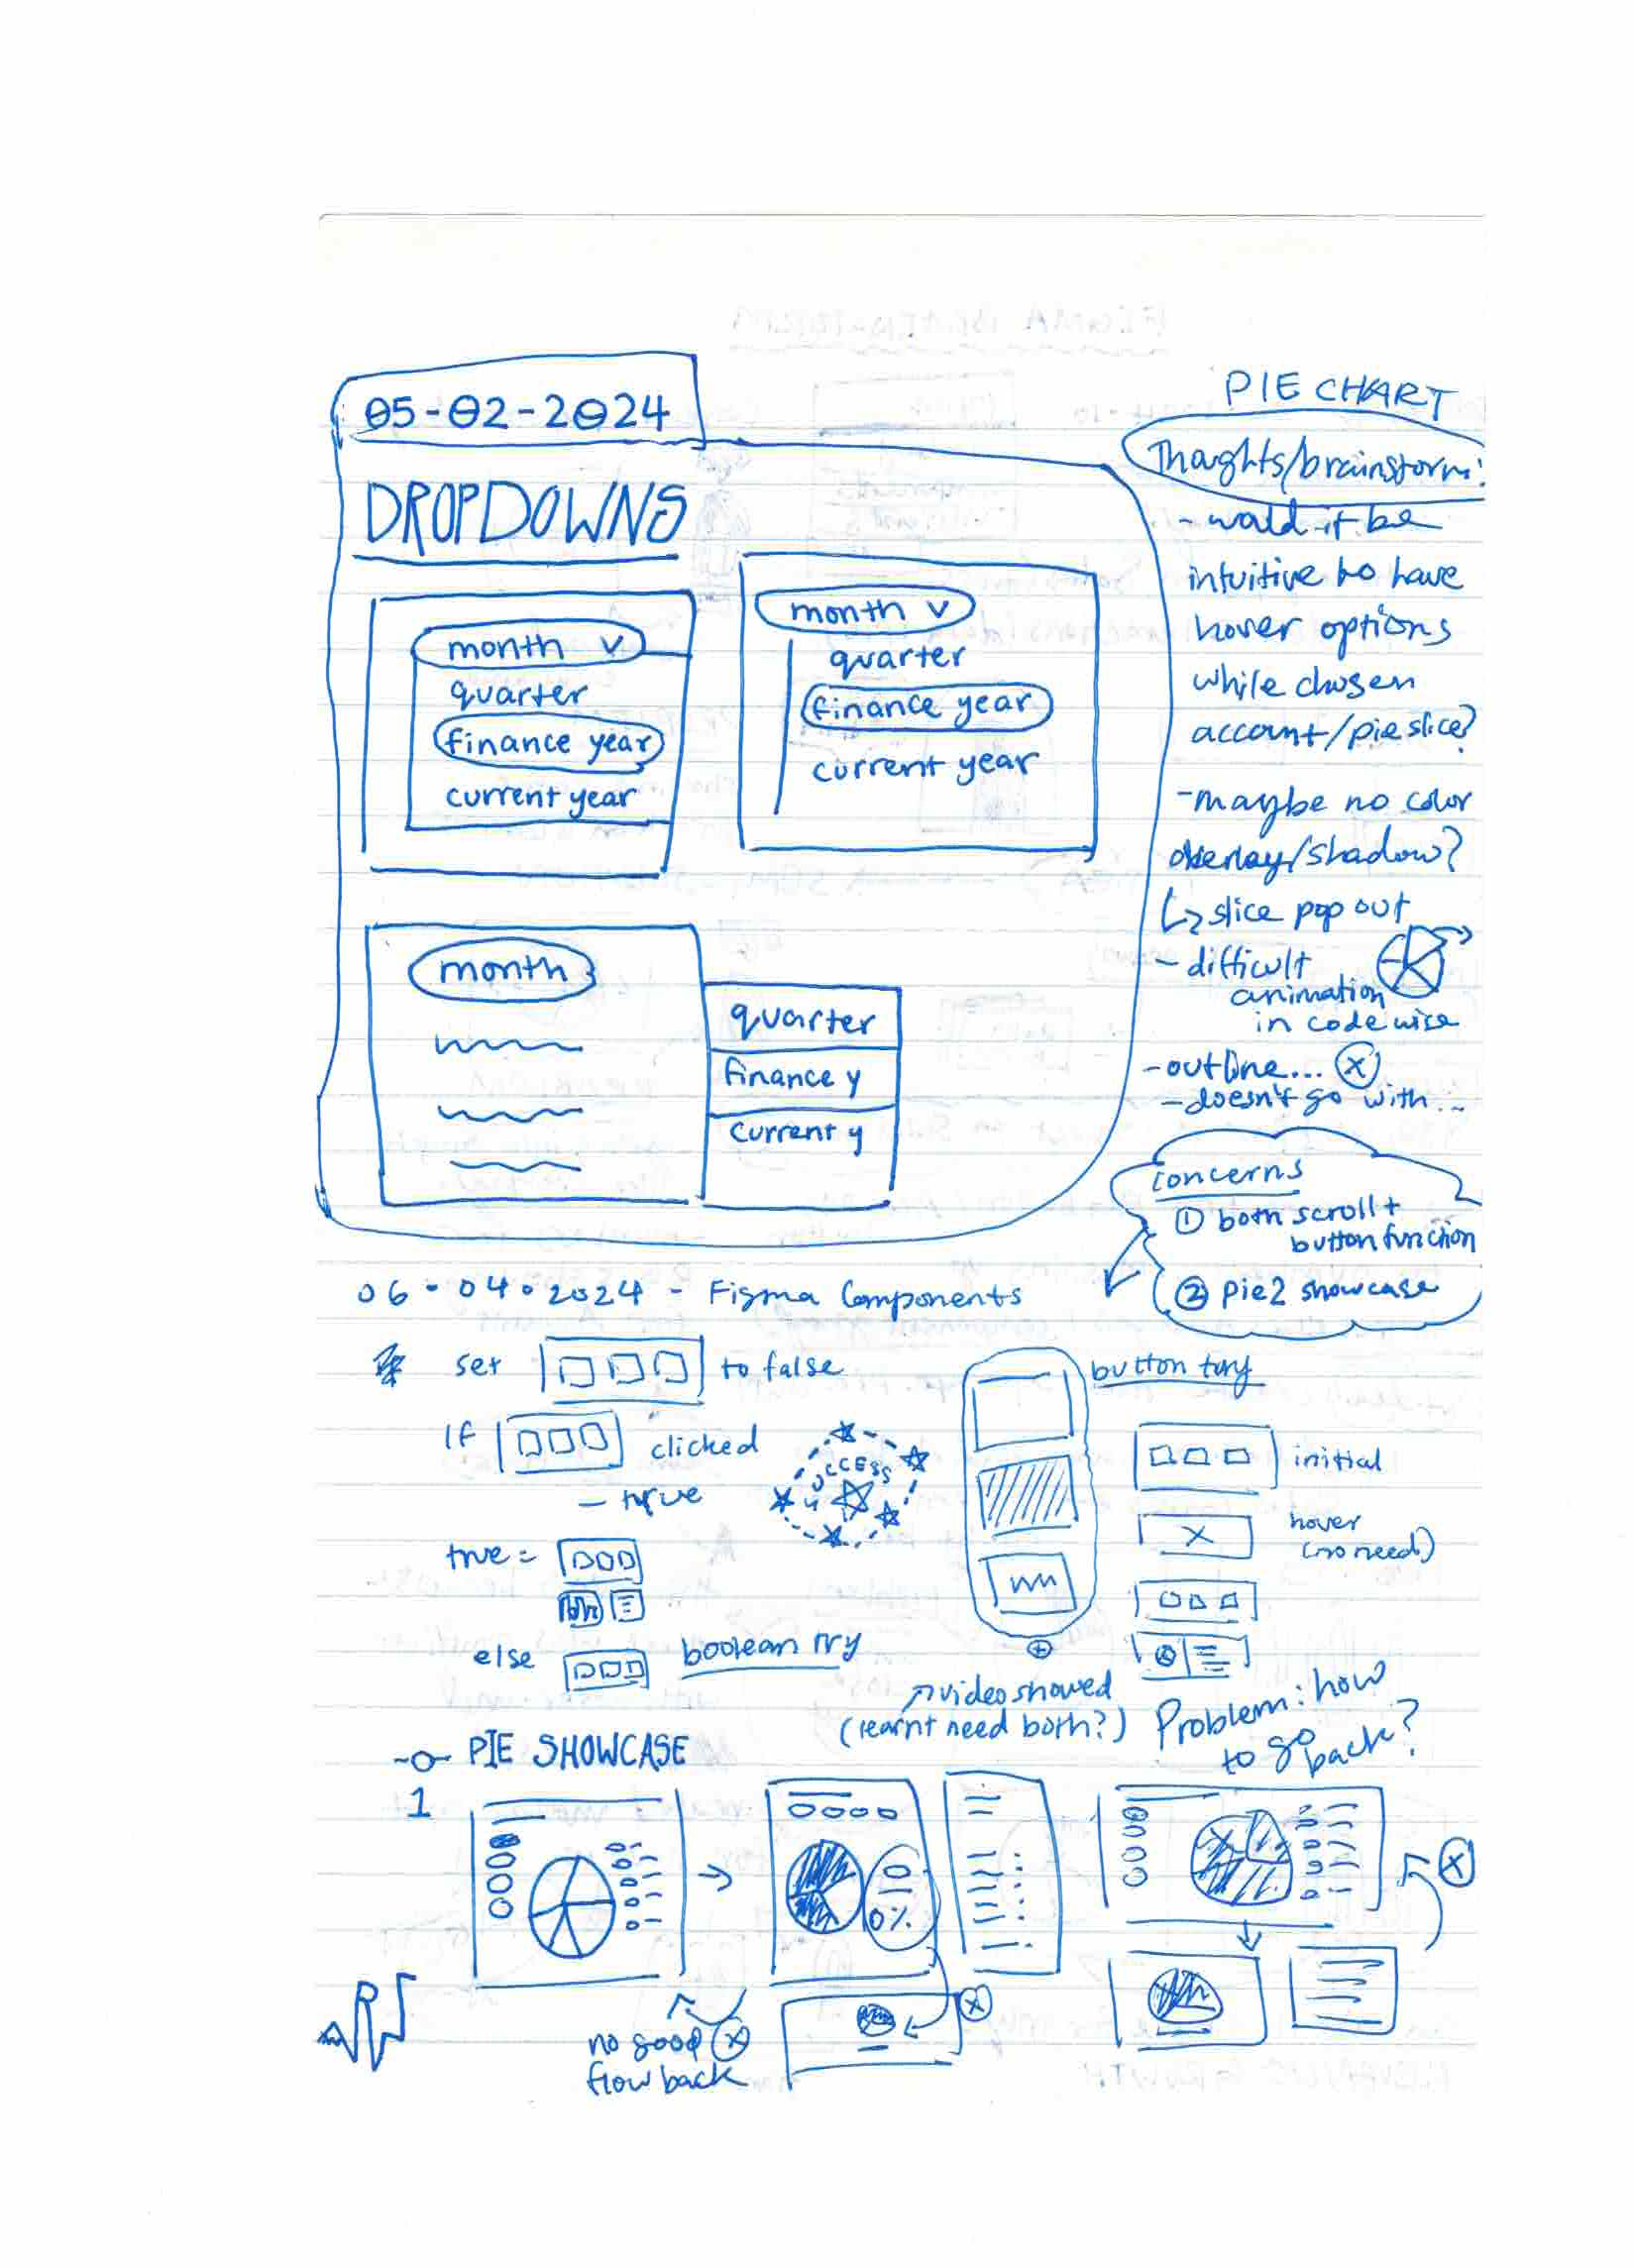 05-02-2024
DROPDOWNS
month v
quarter
finance year
current year
month v
quarter
finance year
current year
month
quarter
finance y
current y
PIE CHART
Thoughts/brainstorm:
- would it be
intuitive to have
hover options
while chosen
account/pie slice?
- maybe no color
overlay/shadow?
↳ slice pop out
- difficult
animation
in code wise
- outline... X
- doesn't go with...
concerns
① both scroll +
button function
② pie2 showcase
06-04-2024 - Figma Components
set
to false
If
clicked
- true
true =
else
boolean try
button try
initial
hover
(no need)
video showed
(learnt need both?)
Problem: how
to go back?
PIE SHOWCASE
1
0
0%
X
X
no good X
flow back